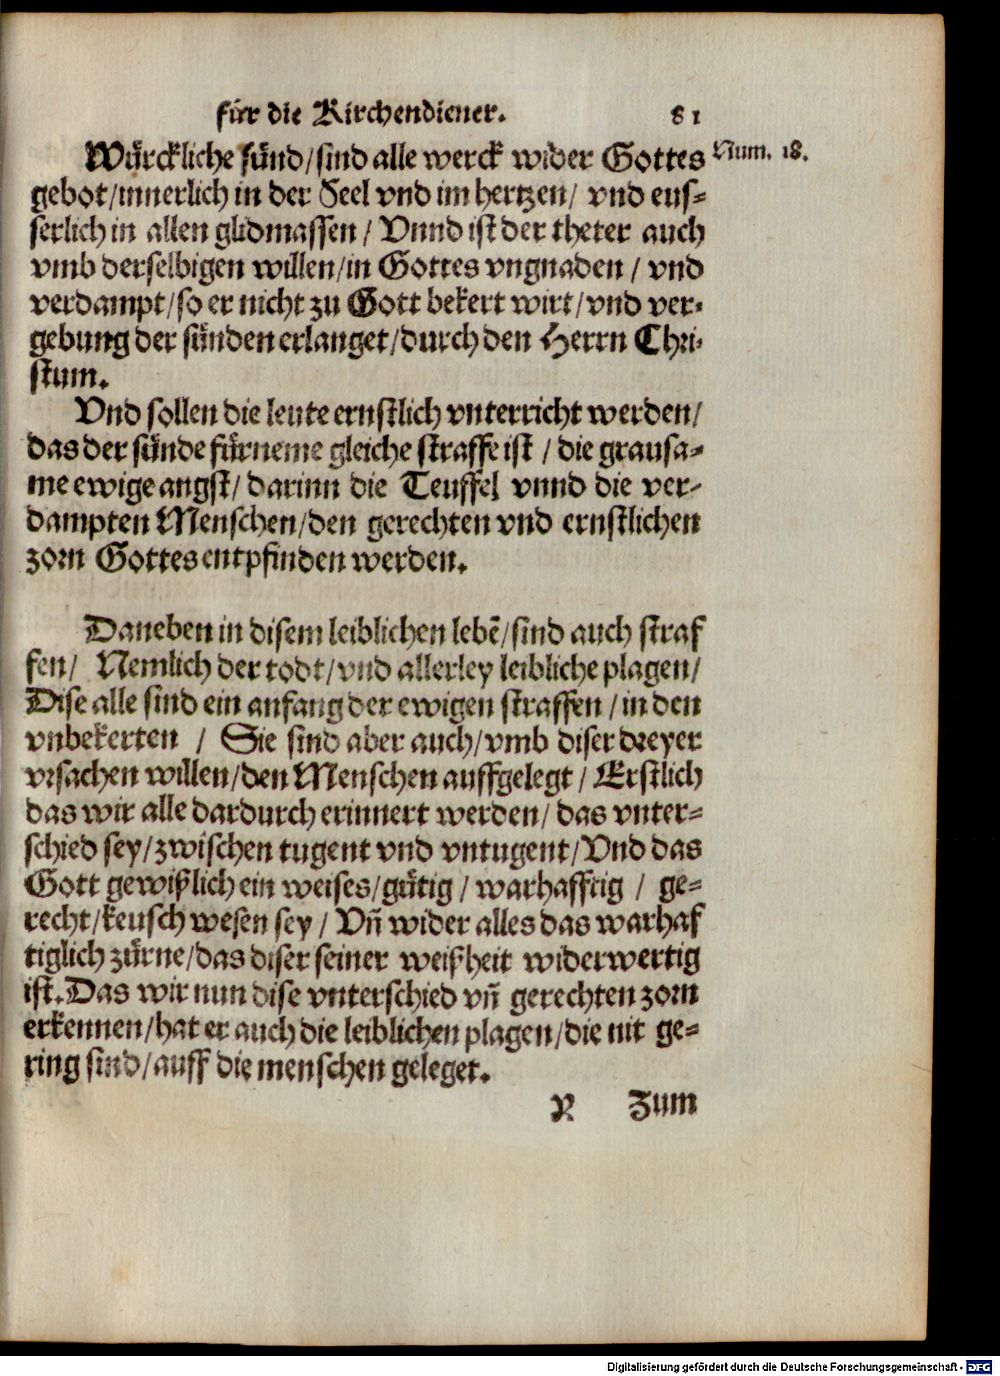 für die Kirchendiener. 81
Würckliche sünd/sind alle werck wider Gottes Num. 18.
gebot/innerlich in der Seel vnd im hertzen/ vnd eus-
serlich in allen glidmassen / Vnnd ist der theter auch
vmb derselbigen willen/in Gottes vngnaden / vnd
verdampt/so er nicht zu Gott bekert wirt/vnd ver-
gebung der sünden erlanget/durch den Herrn Chri-
stum.
Vnd sollen die leute ernstlich vnterricht werden/
das der sünde fürneme gleiche straffe ist / die grausa-
me ewige angst/ darinn die Teuffel vnnd die ver-
dampten Menschen/den gerechten vnd ernstlichen
zorn Gottes entpfinden werden.
Daneben in disem leiblichen lebē/sind auch straf
fen/ Nemlich der todt/vnd allerley leibliche plagen/
Dise alle sind ein anfang der ewigen straffen / in den
vnbekerten / Sie sind aber auch/vmb diser dreyer
vrsachen willen/den Menschen auffgelegt / Erstlich
das wir alle dardurch erinnert werden/ das vnter-
schied sey/zwischen tugent vnd vntugent/Vnd das
Gott gewißlich ein weises/gütig / warhafftig / ge-
recht/keusch wesen sey / Vñ wider alles das warhaf
tiglich zürne/das diser seiner weißheit widerwertig
ist. Das wir nun dise vnterschied vñ gerechten zorn
erkennen/hat er auch die leiblichen plagen/die nit ge-
ring sind/auff die menschen geleget.
Y Zum
Digitalisierung gefördert durch die Deutsche Forschungsgemeinschaft - DFG